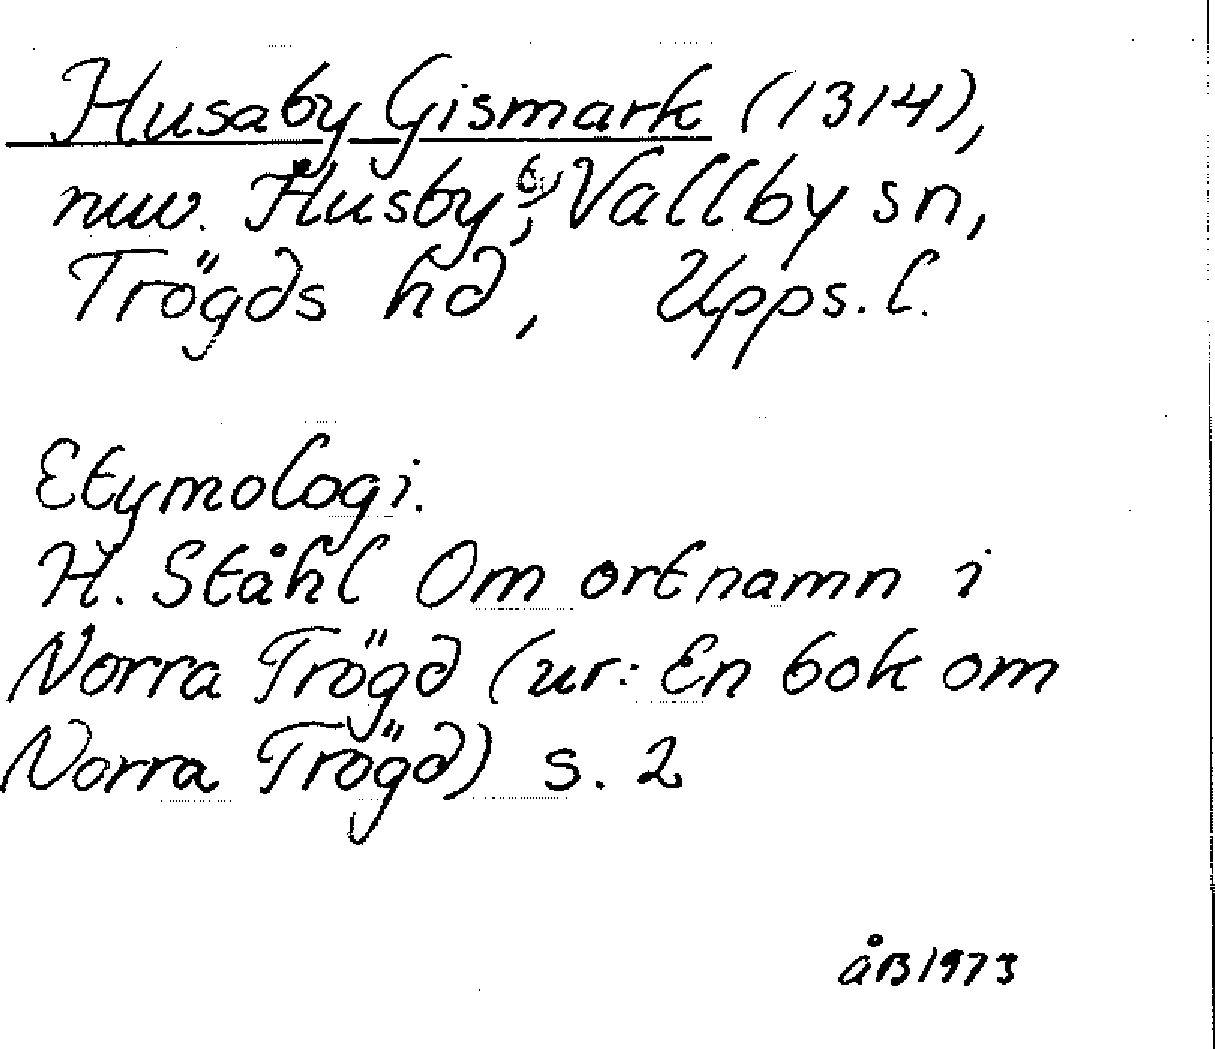 Husaby Gismark (1314),
nuv. Husby by, Vallby sn,
Trögds hd, Upps. l.
Etymologi.
H. Ståhl Om ortnamn i
Norra Trögd (ur: En bok om
Norra Trögd) s. 2
åB 1973